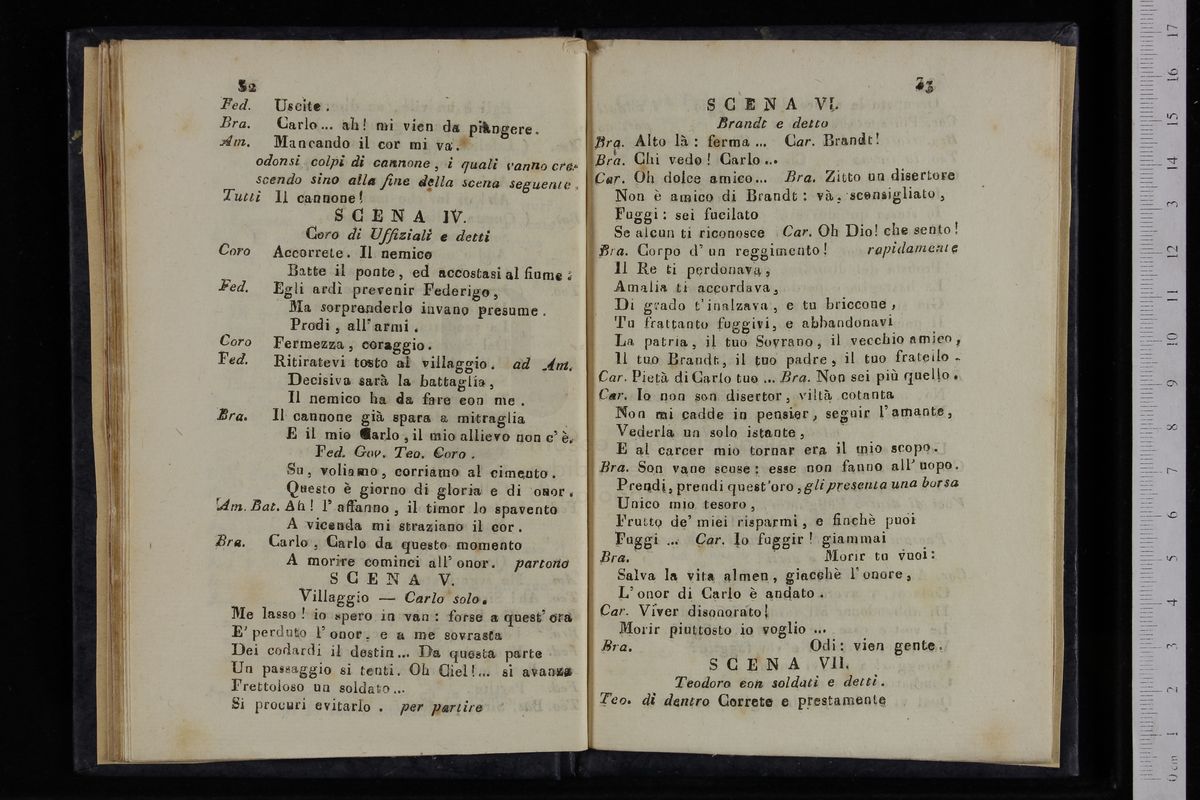 32
Fed. Uscite.
Bra. Carlo... ah! mi vien da piangere.
Am. Mancando il cor mi va.
odonsi colpi di cannone, i quali vanno cre-
scendo sino alla fine della scena seguente.
Tutti Il cannone!
SCENA IV.
Coro di Uffiziali e detti
Coro Accorrete. Il nemico
Batte il ponte, ed accostasi al fiume:
Fed. Egli ardì prevenir Federigo,
Ma sorprenderlo invano presume.
Prodi, all' armi.
Coro Fermezza, coraggio.
Fed. Ritiratevi tosto al villaggio. ad Am.
Decisiva sarà la battaglia,
Il nemico ha da fare con me.
Bra. Il cannone già spara a mitraglia
E il mio Carlo, il mio allievo non c' è.
Fed. Gov. Teo. Coro.
Su, voliamo, corriamo al cimento.
Questo è giorno di gloria e di onor.
Am. Bat. Ah! l' affanno, il timor lo spavento
A vicenda mi straziano il cor.
Bra. Carlo, Carlo da questo momento
A morire cominci all' onor. partono
SCENA V.
Villaggio — Carlo solo.
Me lasso! io spero in van: forse a quest' ora
E' perduto l' onor, e a me sovrasta
Dei codardi il destin... Da questa parte
Un passaggio si tenti. Oh Ciel!... si avanza
Frettoloso un soldato...
Si procuri evitarlo. per partire
33
SCENA VI.
Brandt e detto
Bra. Alto là: ferma... Car. Brandt!
Bra. Chi vedo! Carlo...
Car. Oh dolce amico... Bra. Zitto un disertore
Non è amico di Brandt: và, sconsigliato,
Fuggi: sei fucilato
Se alcun ti riconosce Car. Oh Dio! che sento!
Bra. Corpo d' un reggimento! rapidamente
Il Re ti perdonava,
Amalia ti accordava,
Di grado t' inalzava, e tu briccone,
Tu frattanto fuggivi, e abbandonavi
La patria, il tuo Sovrano, il vecchio amico,
Il tuo Brandt, il tuo padre, il tuo fratello -
Car. Pietà di Carlo tuo... Bra. Non sei più quello.
Car. Io non son disertor, viltà cotanta
Non mi cadde in pensier, seguir l' amante,
Vederla un solo istante,
E al carcer mio tornar era il mio scopo.
Bra. Son vane scuse: esse non fanno all' uopo.
Prendi, prendi quest' oro, gli presenta una borsa
Unico mio tesoro,
Frutto de' miei risparmi, e finchè puoi
Fuggi... Car. Io fuggir! giammai
Bra. Morir tu vuoi:
Salva la vita almen, giacchè l' onore,
L' onor di Carlo è andato.
Car. Viver disonorato!
Morir piuttosto io voglio...
Bra. Odi: vien gente.
SCENA VII.
Teodoro con soldati e detti.
Teo. di dentro Correte e prestamente
0 cm 1 2 3 4 5 6 7 8 9 10 11 12 13 14 15 16 17